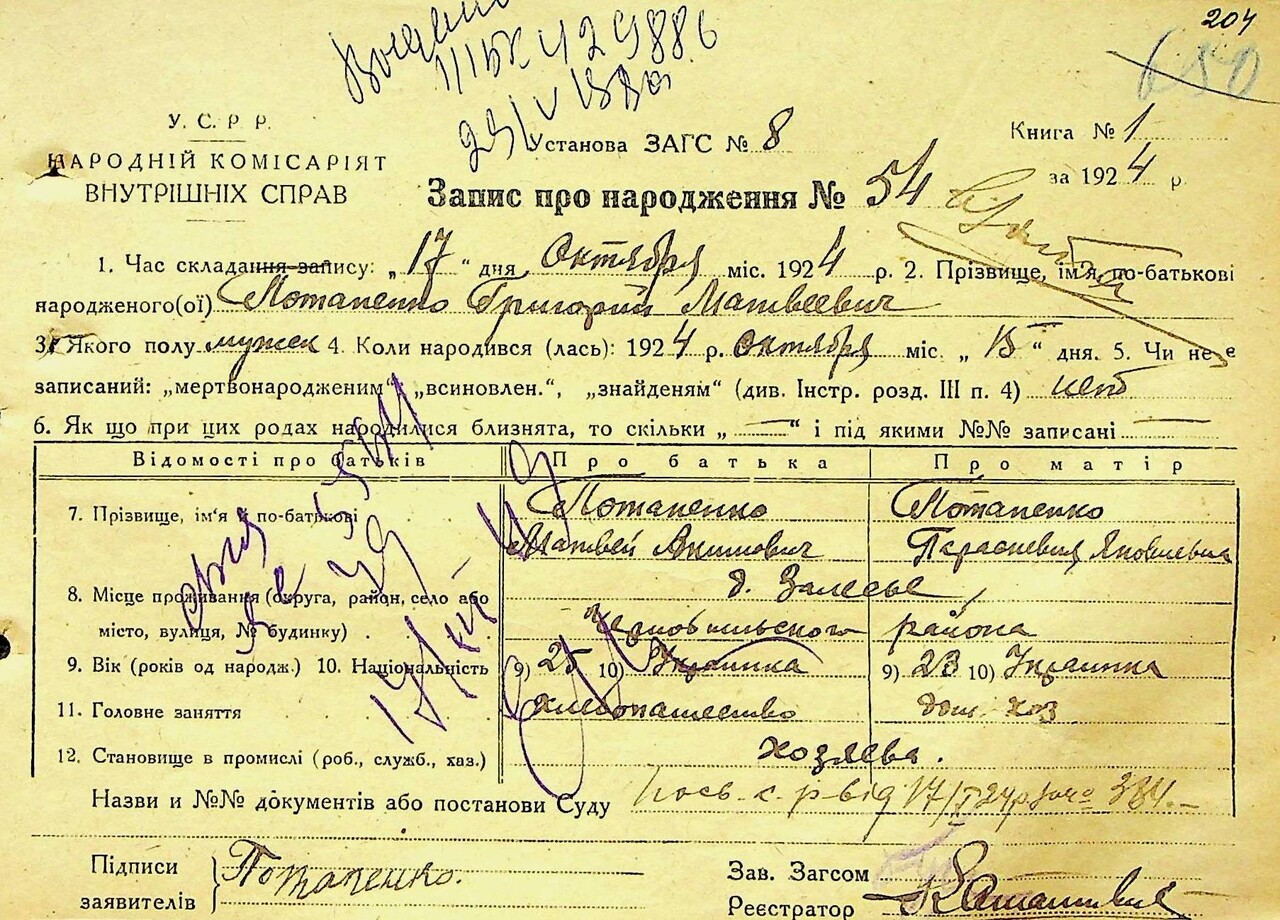 204
650
23/V
У. С. Р. Р.
НАРОДНІЙ КОМІСАРІЯТ
ВНУТРІШНІХ СПРАВ
Установа ЗАГС № 8
Книга № 1
за 1924 р.
Запис про народження № 54
1. Час складання запису: „17" дня Октября міс. 1924 р. 2. Прізвище, ім'я по-батькові
народженого(ої) Потапенко Григорий Матвеевич
3. Якого полу мужск 4. Коли народився (лась): 1924 р. октября міс. „15" дня. 5. Чи не є
записаний: „мертвонародженим", „всиновлен.", „знайденям" (див. Інстр. розд. III п. 4) нет
6. Як що при цих родах народилися близнята, то скільки „—" і під якими №№ записані —
Відомості про батьків Про батька Про матір
7. Прізвище, ім'я й по-батькові Потапенко Потапенко
Матвей Акимович Парасневия Яковлевна
8. Місце проживання (округа, район, село або д. Залесье,
місто, вулиця, № будинку) Чернобыльского района
9. Вік (років од народж.) 10. Національність 9) 25 10) Украинка 9) 23 10) Украинка
11. Головне заняття хлебопашество дом. хоз
12. Становище в промислі (роб., служб., хаз.) хозяева.
Назви и №№ документів або постанови Суду від 17/X 24р 384.
Підписи Потапенко.
заявителів
Зав. Загсом
Реєстратор